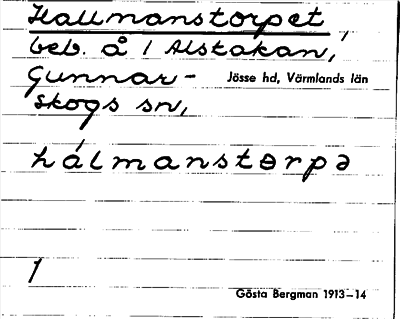 Hallmanstorpet,
beb. å / Alstakan,
Gunnar- Jösse hd, Värmlands län
skogs sn,
hálmanstɵrpə
1
Gösta Bergman 1913–14